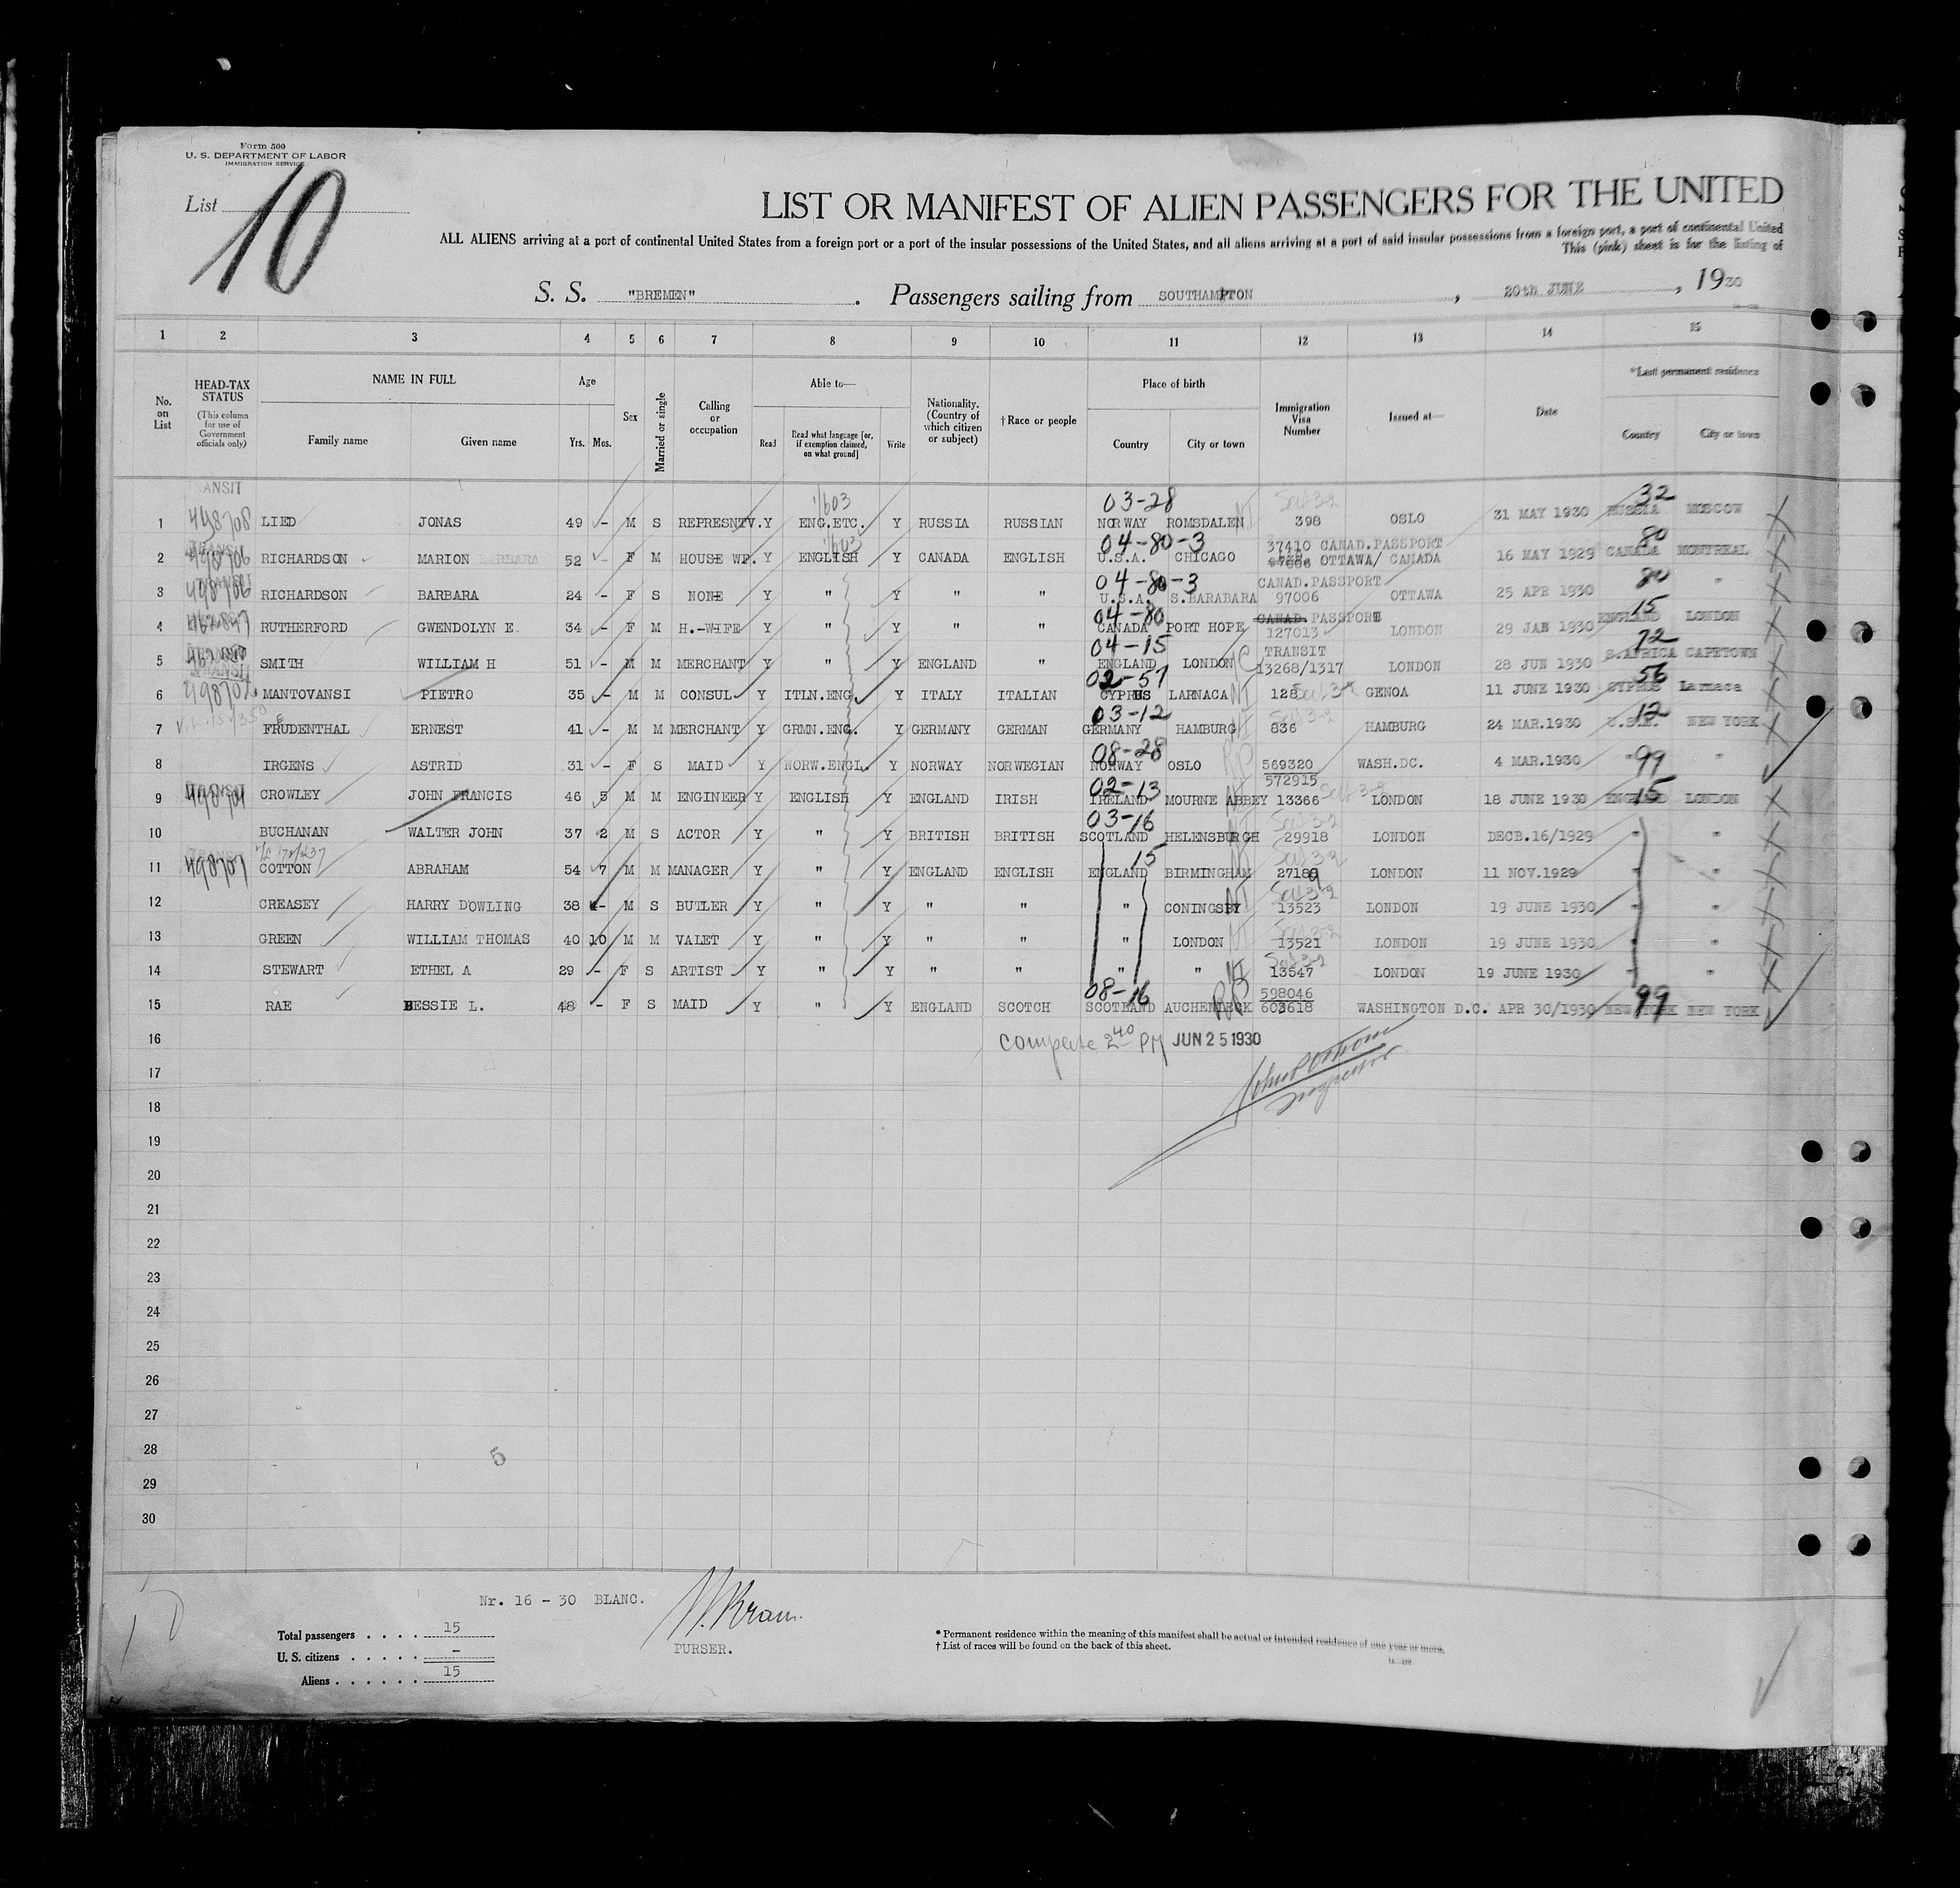 Form 500
U. S. DEPARTMENT OF LABOR
IMMIGRATION SERVICE
List 10
LIST OR MANIFEST OF ALIEN PASSENGERS FOR THE UNITED
ALL ALIENS arriving at a port of continental United States from a foreign port or a port of the insular possessions of the United States, and all aliens arriving at a port of said insular possessions from a foreign port, a port of continental United
This (pink) sheet is for the listing of
S. S. "BREMEN" . Passengers sailing from SOUTHAMPTON , 20th JUNE , 1930
1 2 3 4 5 6 7 8 9 10 11 12 13 14 15
No. on List
HEAD-TAX STATUS (This column for use of Government officials only)
NAME IN FULL Family name Given name
Age Yrs. Mos.
Sex
Married or single
Calling or occupation
Able to— Read Read what language [or, if exemption claimed, on what ground] Write
Nationality. (Country of which citizen or subject)
†Race or people
Place of birth Country City or town
Immigration Visa Number
Issued at—
Date
*Last permanent residence Country City or town
TRANSIT 1/603 03-28 32
1 498708 LIED JONAS 49 - M S REPRESNTV. Y ENG.ETC. Y RUSSIA RUSSIAN NORWAY ROMSDALEN 398 OSLO 31 MAY 1930 RUSSIA MOSCOW
1/603 04-80-3 37410 CANAD.PASSPORT 80
2 498706 RICHARDSON MARION BARBARA 52 - F M HOUSE WF. Y ENGLISH Y CANADA ENGLISH U.S.A. CHICAGO OTTAWA/ CANADA 16 MAY 1929 CANADA MONTREAL
04-80-3 CANAD.PASSPORT 80
3 498706 RICHARDSON BARBARA 24 - F S NONE Y " Y " " U.S.A. S.BARABARA 97006 OTTAWA 25 APR 1930 "
04-80 CANAD. PASSPORT 15
4 RUTHERFORD GWENDOLYN E 34 - F M H.-WIFE Y " Y " " CANADA PORT HOPE 127013 LONDON 29 JAN 1930 ENGLAND LONDON
04-15 TRANSIT 72
5 SMITH WILLIAM H 51 - M M MERCHANT Y " Y ENGLAND " ENGLAND LONDON 13268/1317 LONDON 28 JUN 1930 S.AFRICA CAPETOWN
02-57 56
6 498702 MANTOVANSI PIETRO 35 - M M CONSUL Y ITLN.ENG. Y ITALY ITALIAN CYPRUS LARNACA NI 128 Sec 3-2 GENOA 11 JUNE 1930 CYPRUS Larnaca
03-12 Sec 3-2 12
7 FRUDENTHAL ERNEST 41 - M M MERCHANT Y GRMN.ENG. Y GERMANY GERMAN GERMANY HAMBURG 836 HAMBURG 24 MAR.1930 U.S.A. NEW YORK
08-28 99
8 IRGENS ASTRID 31 - F S MAID Y NORW.ENGL. Y NORWAY NORWEGIAN NORWAY OSLO RP 569320 572915 WASH.DC. 4 MAR.1930 " "
02-13 15
9 498701 CROWLEY JOHN FRANCIS 46 5 M M ENGINEER Y ENGLISH Y ENGLAND IRISH IRELAND MOURNE ABBEY 13366 Sec 3-2 LONDON 18 JUNE 1930 ENGLAND LONDON
03-16 Sec 3-2
10 BUCHANAN WALTER JOHN 37 2 M S ACTOR Y " Y BRITISH BRITISH SCOTLAND HELENSBURGH 29918 LONDON DECB.16/1929 " "
15 Sec 3-2
11 498707 COTTON ABRAHAM 54 7 M M MANAGER Y " Y ENGLAND ENGLISH ENGLAND BIRMINGHAM 27189 LONDON 11 NOV.1929 " "
12 CREASEY HARRY DOWLING 38 - M S BUTLER Y " Y " " " CONINGSBY NI Sec 3-2 13523 LONDON 19 JUNE 1930 " "
13 GREEN WILLIAM THOMAS 40 10 M M VALET Y " Y " " " LONDON NI Sec 3-2 13521 LONDON 19 JUNE 1930 " "
14 STEWART ETHEL A 29 - F S ARTIST Y " Y " " " " NI Sec 3-2 13547 LONDON 19 JUNE 1930 " "
08-16 598046 99
15 RAE BESSIE L. 48 - F S MAID Y " Y ENGLAND SCOTCH SCOTLAND AUCHENLECK RP 603618 WASHINGTON D.C. APR 30/1930 NEW YORK NEW YORK
16 Complete 2 40 PM JUN 25 1930
17 Inspector
18
19
20
21
22
23
24
25
26
27
28 5
29
30
Nr. 16 - 30 BLANC.
Total passengers . . . . 15
U. S. citizens . . . . . -
Aliens . . . . . . 15
PURSER.
* Permanent residence within the meaning of this manifest shall be actual or intended residence of one year or more.
† List of races will be found on the back of this sheet.